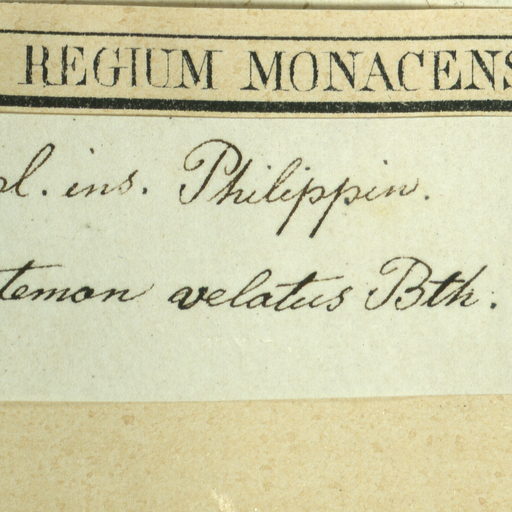 REGIUM MONACENS
pl. ins. Philippin.
temon velatus Bth.